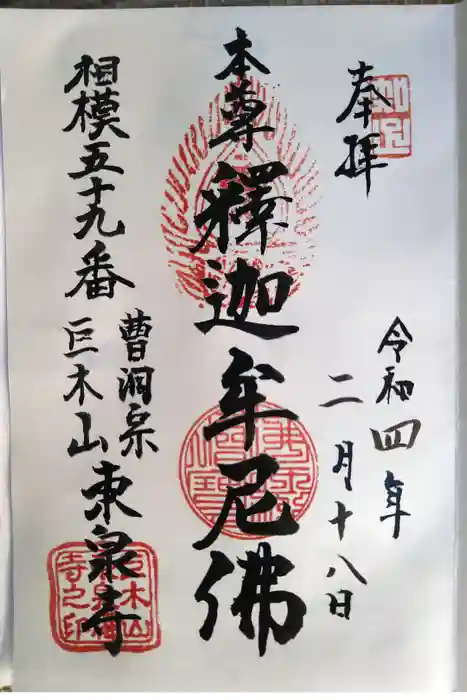 奉拝
令和四年
二月十八日
本尊
釋迦牟尼佛
相模五十九番
曹洞宗
巨木山
東泉寺